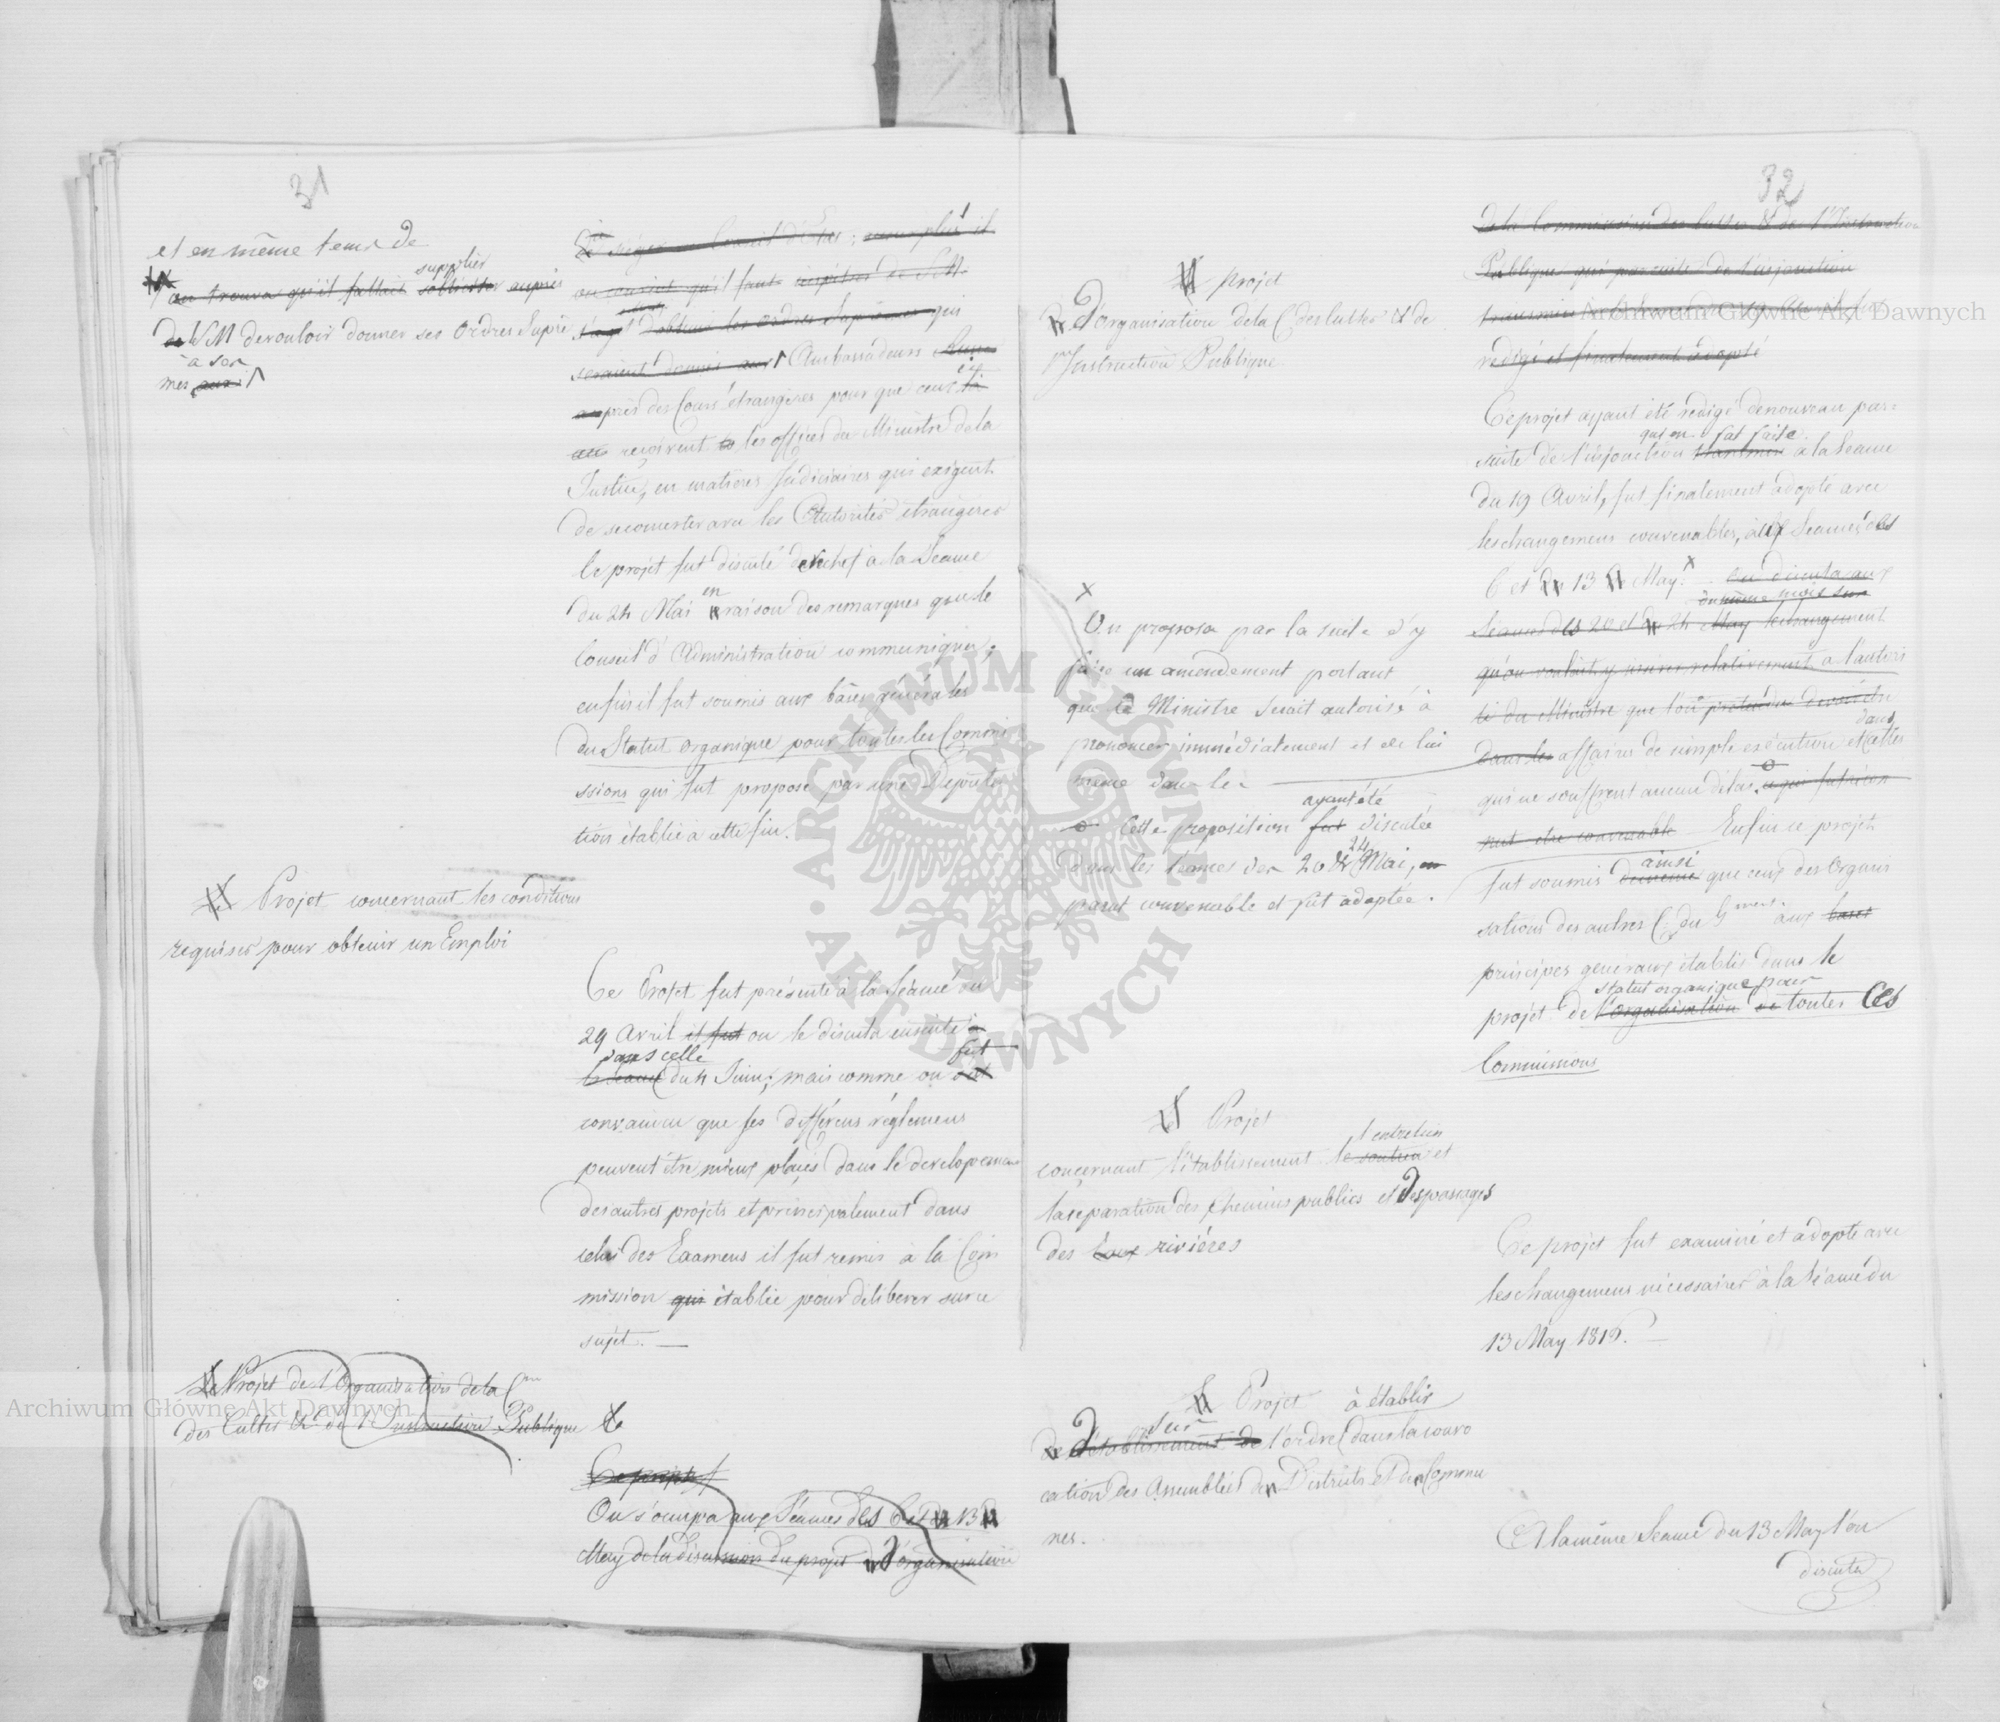 31
et en même tems de
on trouva qu'il fallait supplier solliciter auprès
de S M de vouloir donner ses Ordres Suprê
à ses
mes aux
Conseil d'Etat;
on convint qu'il faut de S.M.
obtenir les ordres Suprêmes qui
seraient donnés aux Ambassadeurs
auprès des Cours étrangères pour que ceux ci
reçoivent les offices du Ministre de la
Justice, en matières Judiciaires qui exigent
de se concerter avec les Autorités étrangères
le projet fut discuté derechef à la Séance
du 24 Mai en raison des remarques que le
Conseil d'Administration communiqua;
enfin il fut soumis aux bases générales
du Statut organique pour toutes les Commis
ssions qui fut proposé par une Députa
tion établie à cette fin.
Projet concernant les conditions
requises pour obtenir un Emploi
Ce Projet fut présenté à la Séance du
29 Avril il fut on le discuta ensuite à
dans celle fut
la Séance du 4 Juin; mais comme on
convaincu que les différens réglemens
peuvent être mieux placés dans le developement
des autres projets et principalement dans
celui des Examens il fut remis à la Com
mission qui établie pour déliberer sur ce
sujet. —
Le Projet de l'Organisation de la Con
des Cultes & de l'Instruction Publique
Ce projet
On s'occupa aux Séances des 6 et 13
May de la discussion du projet d'organisation
32
Projet
d'Organisation de la C. des Cultes & de
l'Instruction Publique
x
On proposa par la suite d'y
faire un amendement portant
que le Ministre serait autorisé à
prononcer immédiatement et de lui
meme dans les
ayant été
Cette proposition fut discutée
dans les seances des 20 & 24 Mai,
parut convenable et fut adoptée.
Projet
l'entretien
concernant l'établissement le soutien et
la réparation des chemins publics et des passages
des rivières
Projet à établir
sur
de d'établissement de l'ordre dans la convo
cation des Assemblées des Districts et des Commu
nes.
de la Commission des Cultes & de l'Instruction
Publique qui par suite de l'injonction
transmise
redigé et finalement adopté
Ce projet ayant été redigé de nouveau par
qui en fut faite
suite de l'injonction à la Séance
du 19 Avril, fut finalement adopté avec
les changemens convenables, aux Séances des
6 et 13 May. x on discuta aux
du même mois sur
Séances des 20 et 24 May le changement
qu'on voulait y relativement à l'autori
té du Ministre que l'on
dans
dans les affaires de simple exécution et celles
qui ne souffrent aucun délai. ce qui fut recon
nut etre convenable Enfin ce projet
ainsi
fut soumis de meme que ceux des Organi
sations des autres C. du Gment. aux bases
principes généraux établis dans le
statut organique pour
projet de l'organisation de toutes Ces
Commissions
Ce projet fut examiné et adopté avec
les changemens nécessaires à la Séance du
13 May 1816. —
A la même Séance du 13 May l'on
discuta
Archiwum Główne Akt Dawnych
Archiwum Główne Akt Dawnych
ARCHIWUM GŁÓWNE AKT DAWNYCH